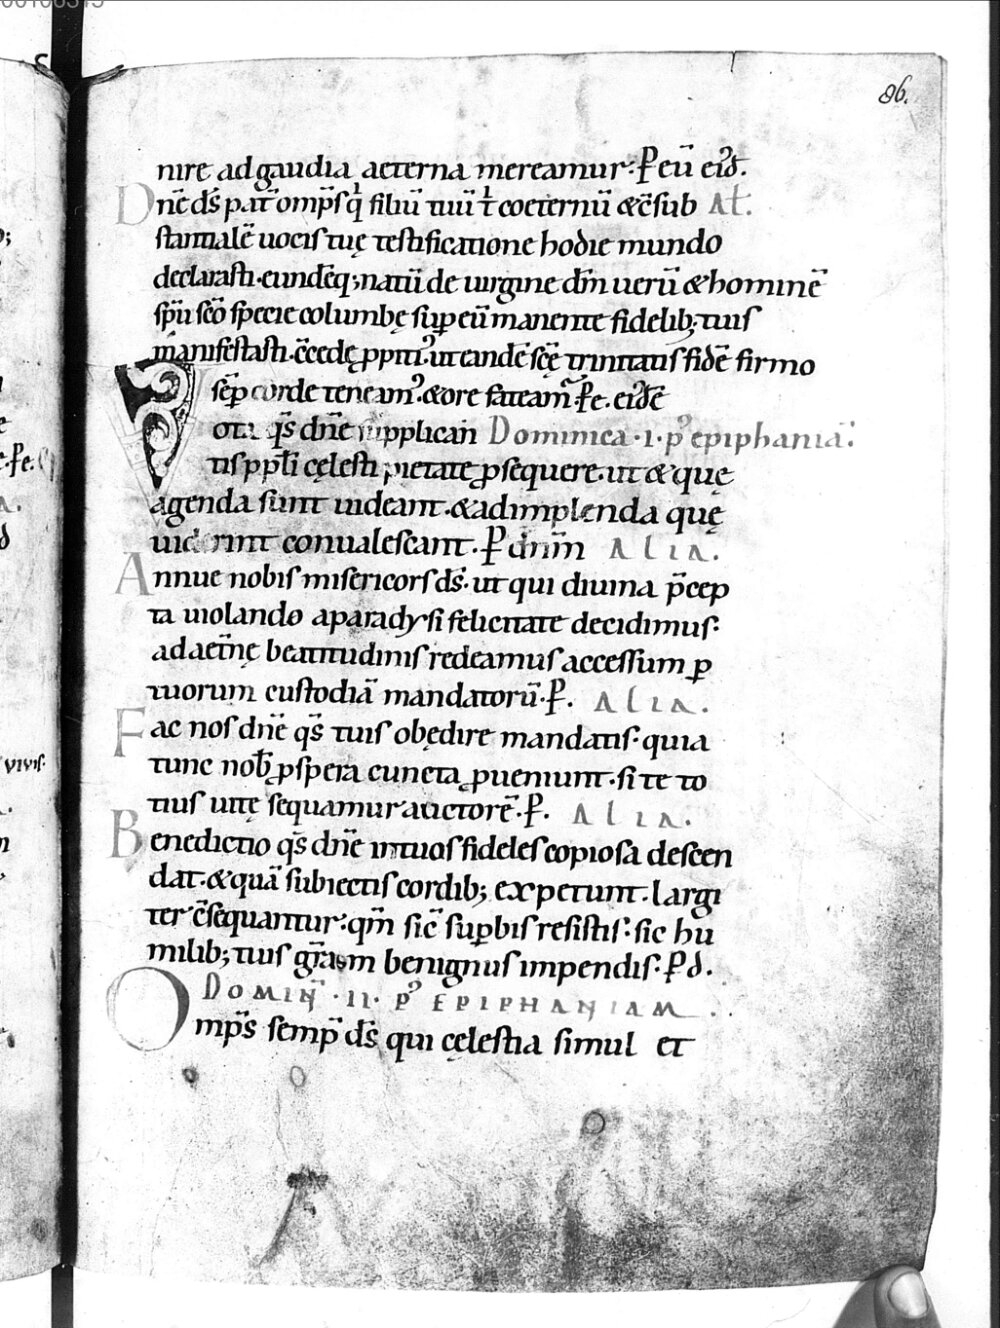 86.
nire ad gaudia aeterna mereamur·P eū eiꝰd.
Dn̄e d̄s pat̄ om̄ps q̇ filiū tuū t coeternū & c̄sub At.
stantialē uocis tuę testificatione hodie mundo
declarasti·eundēq; natū de uirgine d̄m uerū & hominē
sp̄u sc̄o specie columbę sup eū manente fidelib; tuis
manifestasti·c̄cede ꝓpitiꝰ ut eandē sc̄ę trinitatis fidē firmo
sēp corde teneamꝰ & ore fateamꝰ Pe. eiꝰdē
Vota q̄s dn̄e supplican Dominica·i·pꝰ epiphania:
tis ppl̄i cęlesti pietate ꝓsequere·ut & quę
agenda sunt uideant·& adimplenda quę
uiderint conualescant·P dn̄m Alia.
Annue nobis misericors d̄s·ut qui diuina p̄cep
ta uiolando a paradysi felicitate decidimus·
ad aet̄nę beatitudinis redeamus accessum ꝑ
tuorum custodiā mandatorū·P. Alia.
Fac nos dn̄e q̄s tuis obędire mandatis·quia
tunc nob ꝓspera cuncta ꝓueniunt·si te to
tius uitę sequamur auctorē·P. Alia.
Benedictio q̄s dn̄e in tuos fideles copiosa descen
dat·& quā subiectis cordib; expetunt·largi
ter c̄sequantur·qm̄ sic̄ supbis resistis·sic hu
milib; tuis gr̄am benignus impendis·P d.
Domin̄·ii·pꝰ epiphaniam..
Omp̄s semp̄ d̄s qui cęlestia simul et